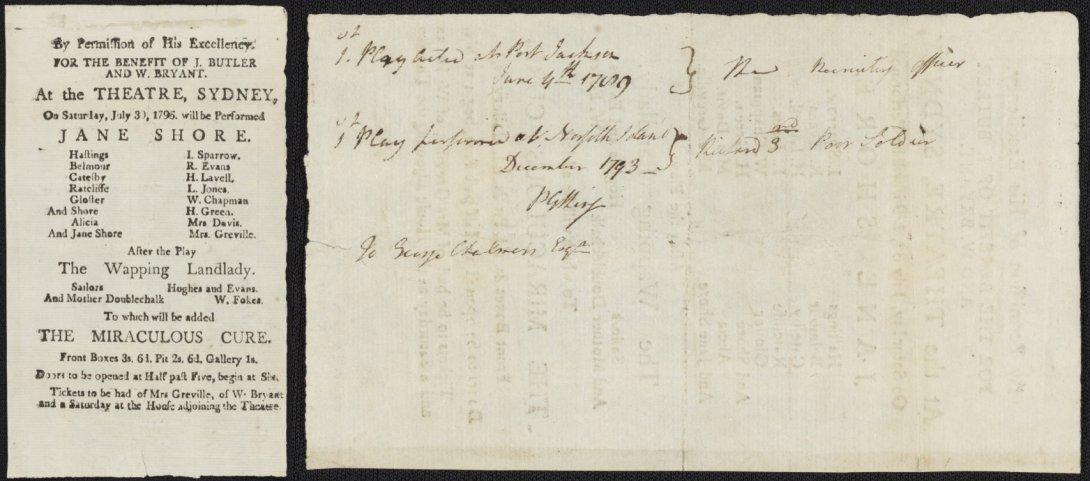 By Permiſſion of His Excellency.
FOR THE BENEFIT OF J. BUTLER
AND W. BRYANT.
At the THEATRE, SYDNEY,
On Saturday, July 30, 1796. will be Performed
JANE SHORE.
Haſtings I. Sparrow.
Belmour R. Evans
Cateſby H. Lavell.
Ratcliffe L. Jones.
Gloſter W. Chapman
And Shore H. Green.
Alicia Mrs Davis.
And Jane Shore Mrs. Greville.
After the Play
The Wapping Landlady.
Sailors Hughes and Evans.
And Mother Doublechalk W. Fokes.
To which will be added
THE MIRACULOUS CURE.
Front Boxes 3s. 6d. Pit 2s. 6d. Gallery 1s.
Doors to be opened at Half paſt Five, begin at Six.
Tickets to be had of Mrs Greville, of W. Bryant
and a Saturday at the Houſe adjoining the Theatre
1st Play acted at Port Jackson
June 4th 1789 } The Recruiting officer
1st Play performed at Norfolk Island
December 1793 } Richard 3rd Poor Soldier
PGKing
To George Chalmers Esqr